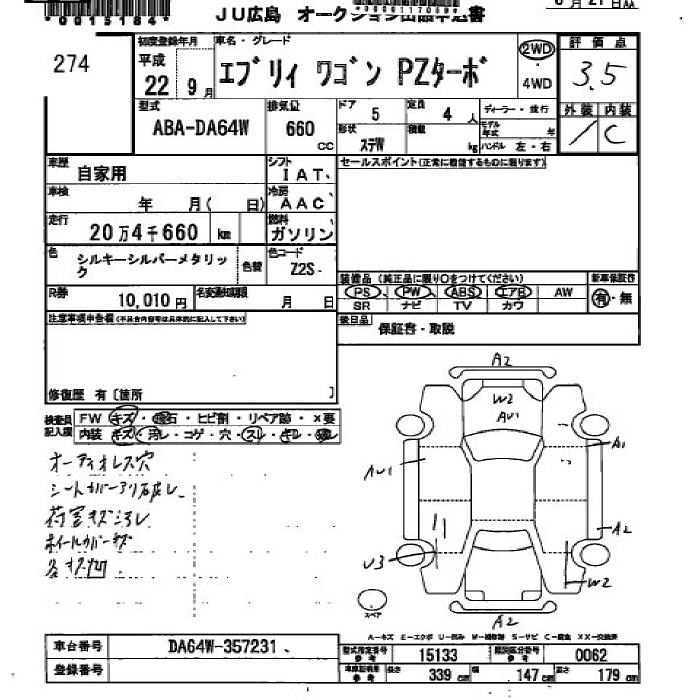 *0015184*
JU広島 オークション出品申込書
274
初度登録年月 平成 22年 9月
車名・グレード エブリィ ワゴン PZターボ
2WD・4WD
評価点 3.5
型式 ABA-DA64W
排気量 660 CC
ドア 5 定員 4人
形状 ステW 積載 kg
ディーラー・並行
モデル年式 年
ハンドル 左・右
外装 内装 C
車歴 自家用
シフト IAT
セールスポイント(正常に機能するものに限ります)
車検 年 月( 日)
冷房 AAC
走行 20万4千660 km
燃料 ガソリン
色 シルキーシルバーメタリック 色替
色コード Z2S
装備品(純正品に限り○をつけてください) 新車保証書
PS PW ABS エアB AW 有・無
SR ナビ TV カワ
R券 10,010円 名変通知期限 月 日
後日品 保証書・取説
注意事項申告欄(不具合内容等は具体的に記入して下さい)
修復歴 有〔箇所 〕
検査員記入欄 FW キズ・飛石・ヒビ割・リペア跡・×要
内装 キズ・汚レ・コゲ・穴・スレ・
オーディオレス穴
シートカバーアリ
荷室キズ汚レ
ホイールカバーキズ
A2
W2
AU1
A1
AU1
A2
U3
W2
スペア
A2
A-キズ E-エクボ U-凹み W-補修跡 S-サビ C-腐食 XX-交換済
車台番号 DA64W-357231
型式指定番号 参考 15133 類別区分番号 参考 0062
登録番号
車体証明用 参考 長さ 339 cm 幅 147 cm 高さ 179 cm